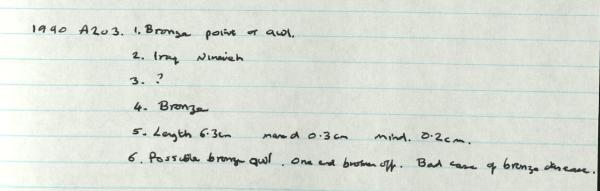 1990 A203. 1. Bronze point or awl.
2. Iraq Nineveh
3. ?
4. Bronze
5. Length 6.3cm maxd 0.3cm mind. 0.2cm.
6. Possible bronze awl. One end broken off. Bad case of bronze disease.